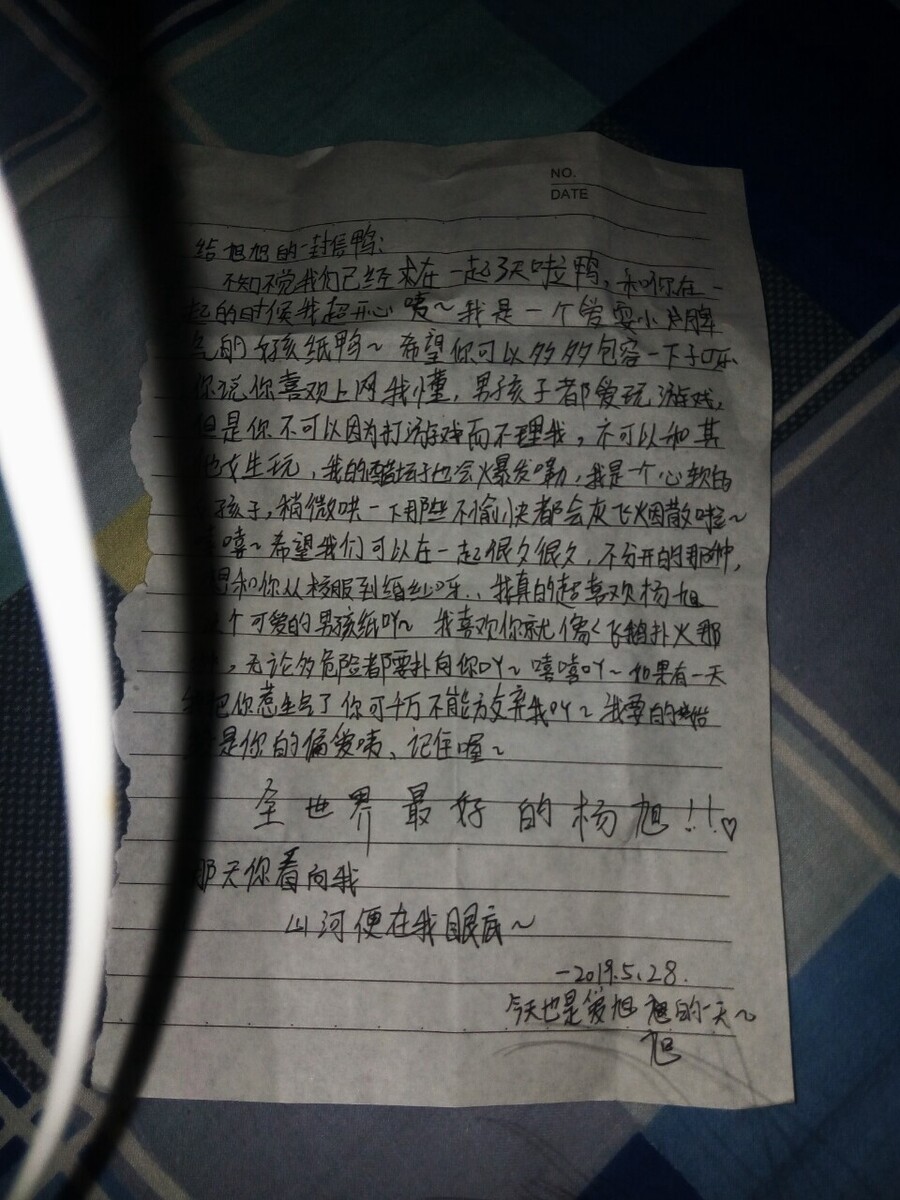 NO.
DATE
给旭旭的一封信鸭：
不知不觉我们已经来在一起3天啦鸭，和你在一
起的时候我超开心咦～我是一个爱耍小脾
气的女孩纸鸭～希望你可以多多包容一下子呀
你说你喜欢上网我懂，男孩子都爱玩游戏，
但是你不可以因为打游戏而不理我，亦可以和其
他女生玩，我的醋坛子也会爆发嘞，我是个心软的
孩子，稍微哄一下那些不愉快都会灰飞烟散啦～
嘻～希望我们可以在一起很久很久，不分开的那种，
想和你从校服到婚纱呀..我真的超喜欢杨旭
个可爱的男孩纸吖～我喜欢你就像飞鹅扑火那
，无论多危险都要扑向你吖～嘻嘻吖～如果有一天
把你惹生气了你可千万不能放弃我吖～我要的
是你的偏爱咦、记住喔～
全世界最好的杨旭!!♡
那天你看向我
山河便在我眼底～
-2019.5.28.
今天也是爱旭旭的一天～
旭